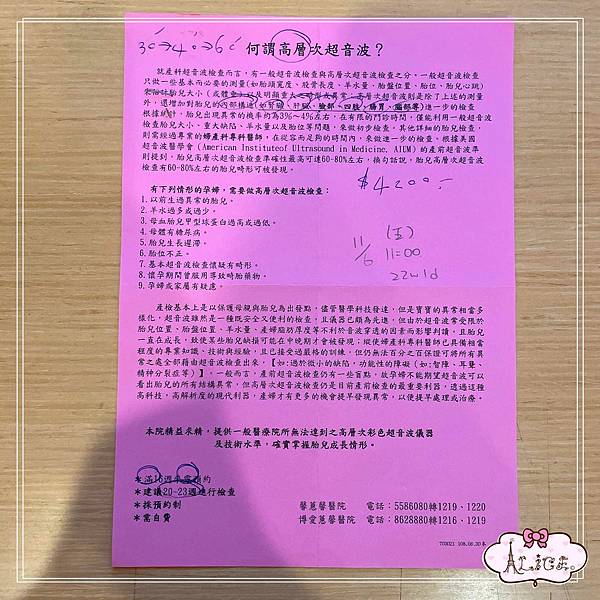 3c→4c→6c
何謂高層次超音波？
就產科超音波檢查而言，有一般超音波檢查與高層次超音波檢查之分。一般超音波檢查
只做一些基本而必要的測量(如胎頭寬度、股骨長度、羊水量、胎盤位置、胎位、胎兒心跳)
來估計胎兒大小(或體重)以及明顯重大之畸型或異常；高層次超音波則是除了上述的測量
外，還增加對胎兒的內部構造(如腎臟、肝臟、臉部、四肢、腸胃、腦部等)進一步的檢查。
根據統計，胎兒出現異常的機率約為3%～4%左右，在有限的門診時間，僅能利用一般超音波
檢查胎兒大小、重大缺陷、羊水量以及胎位等問題，來做初步檢查，其他詳細的胎兒檢查，
則需經過專業的婦產科專科醫師，在從容而足夠的時間內，來做進一步的檢查。根據美國
超音波醫學會 (American Instituteof Ultrasound in Medicine, AIUM) 的產前超音波準
則提到，胎兒高層次超音波檢查準確性最高可達60-80%左右，換句話說，胎兒高層次超音波
檢查有60-80%左右的胎兒畸形可被發現。
$4200.-
有下列情形的孕婦，需要做高層次超音波檢查：
1.以前生過異常的胎兒。
2.羊水過多或過少。
3.母血胎兒甲型球蛋白過高或過低。
4.母體有糖尿病。
5.胎兒生長遲滯。
6.胎位不正。
7.基本超音波檢查懷疑有畸形。
8.懷孕期間曾服用導致畸胎藥物。
9.孕婦或家屬有疑慮。
11/6 (五) 11:00
22w1d
產檢基本上是以保護母親與胎兒為出發點，儘管醫學科技發達，但是寶寶的異常相當多
樣化，超音波雖然是一種既安全又便利的檢查，且儀器已頗為先進，但由於超音波常受限於
胎兒位置、胎盤位置、羊水量、產婦脂肪厚度等不利於音波穿透的因素而影響判讀。且胎兒
一直在成長，致使某些胎兒缺損可能在中晚期才會被發現；縱使婦產科專科醫師已具備相當
程度的專業知識、技術與經驗，且已接受過嚴格的訓練，但仍無法百分之百保證可將所有異
常之處全部藉由超音波檢查出來，【如:過於微小的缺陷，功能性的障礙(如:智障、耳聾、
精神分裂症等)】。一般而言，產前超音波檢查仍有一些盲點，故孕婦不能期望超音波可以
看出胎兒的所有結構異常，但高層次超音波檢查仍是目前產前檢查的最重要利器，透過這種
高科技，高解析度的現代利器，產婦才有更多的機會提早發現異常，以便提早處理或治療。
本院精益求精，提供一般醫療院所無法達到之高層次彩色超音波儀器
及技術水準，確實掌握胎兒成長情形。
＊滿16週來電預約
＊建議20-23週進行檢查
＊採預約制
＊需自費
馨蕙馨醫院 電話：5586080轉1219、1220
博愛蕙馨醫院 電話：8628880轉1216、1219
703021 108.06.20本
ALiCE